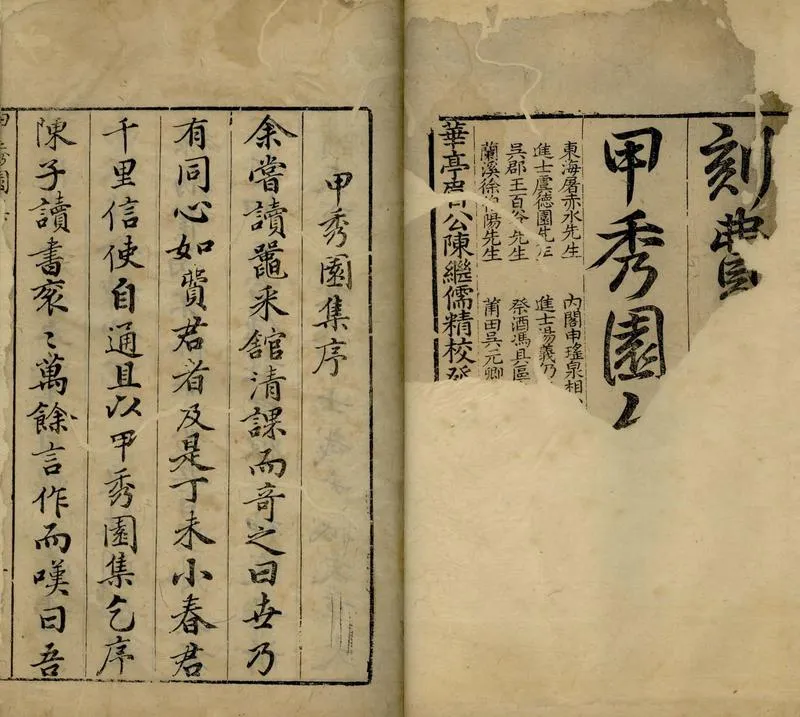 刻費
甲秀園
東海屠赤水先生 內閣申瑤泉相
進士虞德園先 進士湯義仍
吳郡王百谷先生 祭酒馮具區
蘭溪徐 陽先生 莆田吳元卿
華亭眉公陳繼儒精校
甲秀園集序
余嘗讀鼂采舘清課而奇之曰卋乃
有同心如費君者及是丁未小春君
千里信使自通且以甲秀園集乞序
陳子讀書袞〻萬餘言作而嘆曰吾